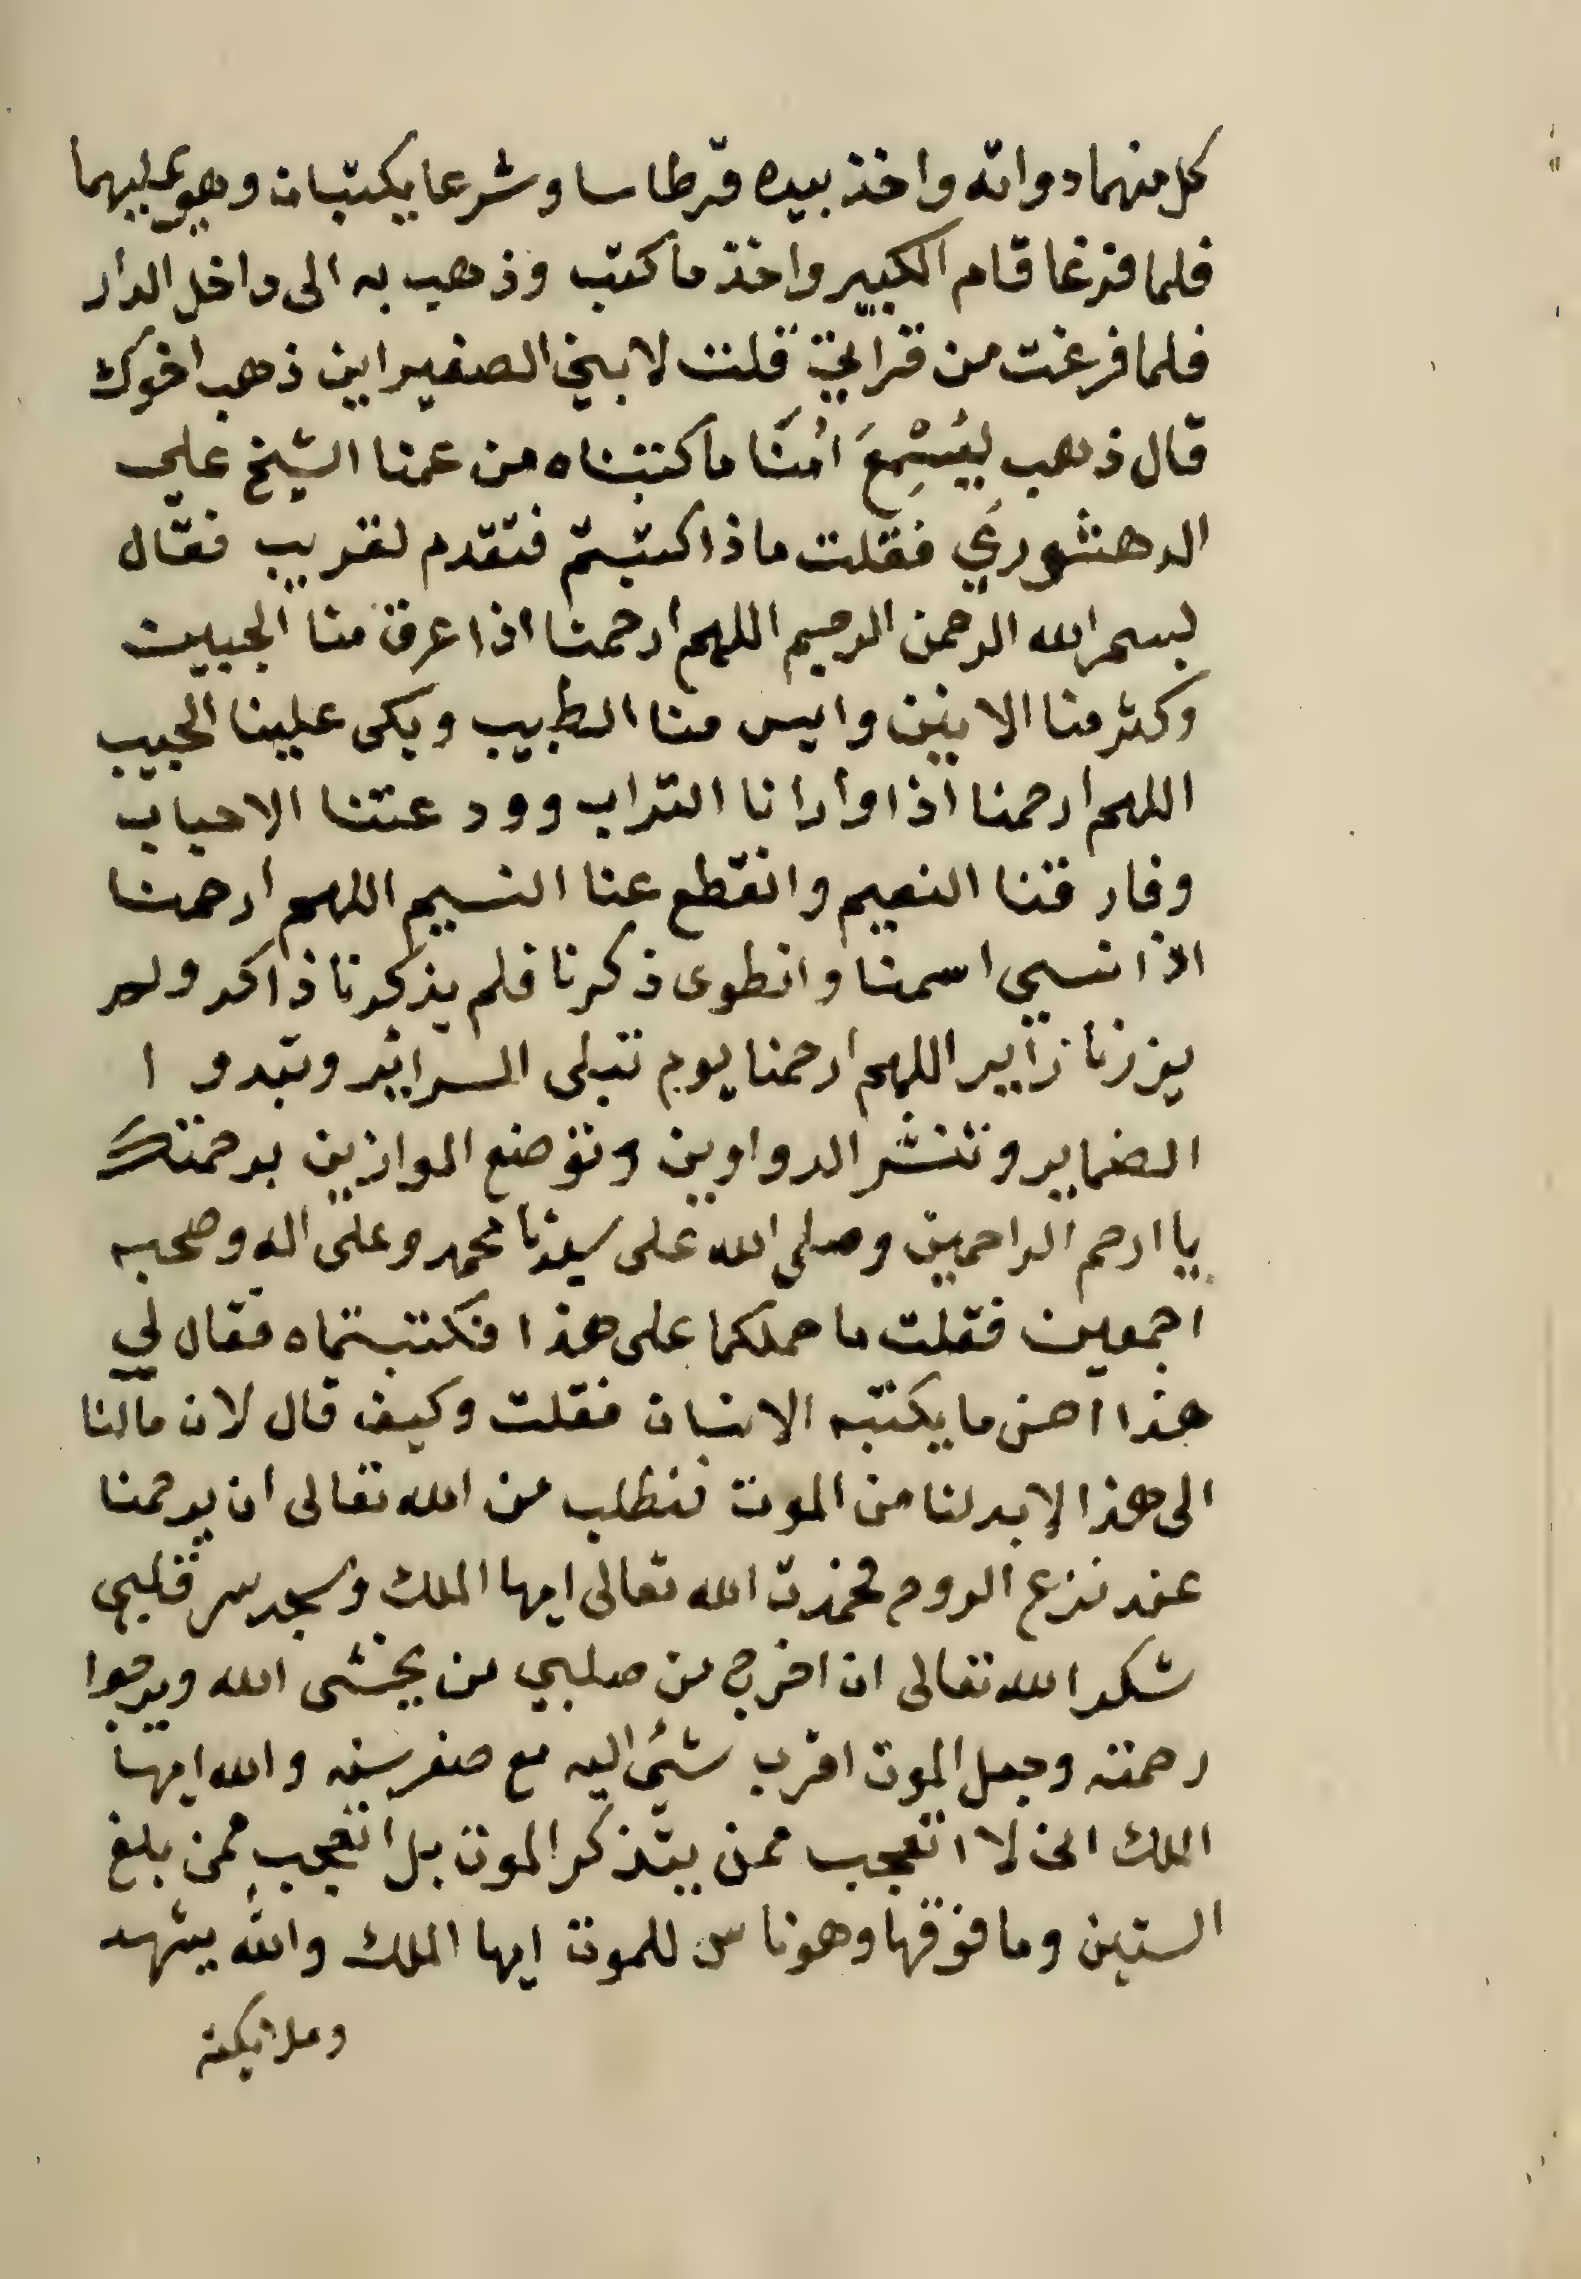 كل منهما دواته واخذ بيده قرطاسا وشرعا يكتبان وهو يمليهما
فلما فرغا قام الكبير واخذ ما كتب وذهب به الى داخل الدار
فلما فرغت من قراتي قلت لابني الصغير اين ذهب اخوك
قال ذهب ليُسْمِعَ امَّنَا ما كتبناه من عمنا الشيخ علي
الدهشوري فقلت ماذا كتبتم فتقدم لقريب فقال
بسم الله الرحمن الرحيم اللهم ارحمنا اذا عرق منا الجبين
وكثر منا الانين وايس منا الطبيب وبكى علينا الحبيب
اللهم ارحمنا اذا وارانا التراب وودعتنا الاحباب
وفارقنا النعيم وانقطع عنا النسيم اللهم ارحمنا
اذا نسي اسمنا وانطوى ذكرنا فلم يذكرنا ذاكر ولم
يزرنا زاير اللهم ارحمنا يوم تبلى السراير وتبدو ا
الضماير وتنشر الدواوين وتوضع الموازين برحمتك
يا ارحم الراحمين وصلى الله على سيدنا محمد وعلى اله وصحبه
اجمعين فقلت ما حملكما على هذا فكتبتماه فقال لي
هذا احسن ما يكتبه الانسان فقلت وكيف قال لان مالنا
الى هذا لابد لنا من الموت فنطلب من الله تعالى ان يرحمنا
عند نزع الروح فحمدت الله تعالى ايها الملك وسجد سر قلبي
شكرا لله تعالى ان اخرج من صلبي من يخشى الله ويرجوا
رحمته وجعل الموت اقرب شئ اليه مع صغر سنه والله ايها
الملك اني لا اتعجب ممن يتذكر الموت بل اتعجب ممن بلغ
الستين وما فوقها وهو ناس للموت ايها الملك والله يشهد
وملايكته